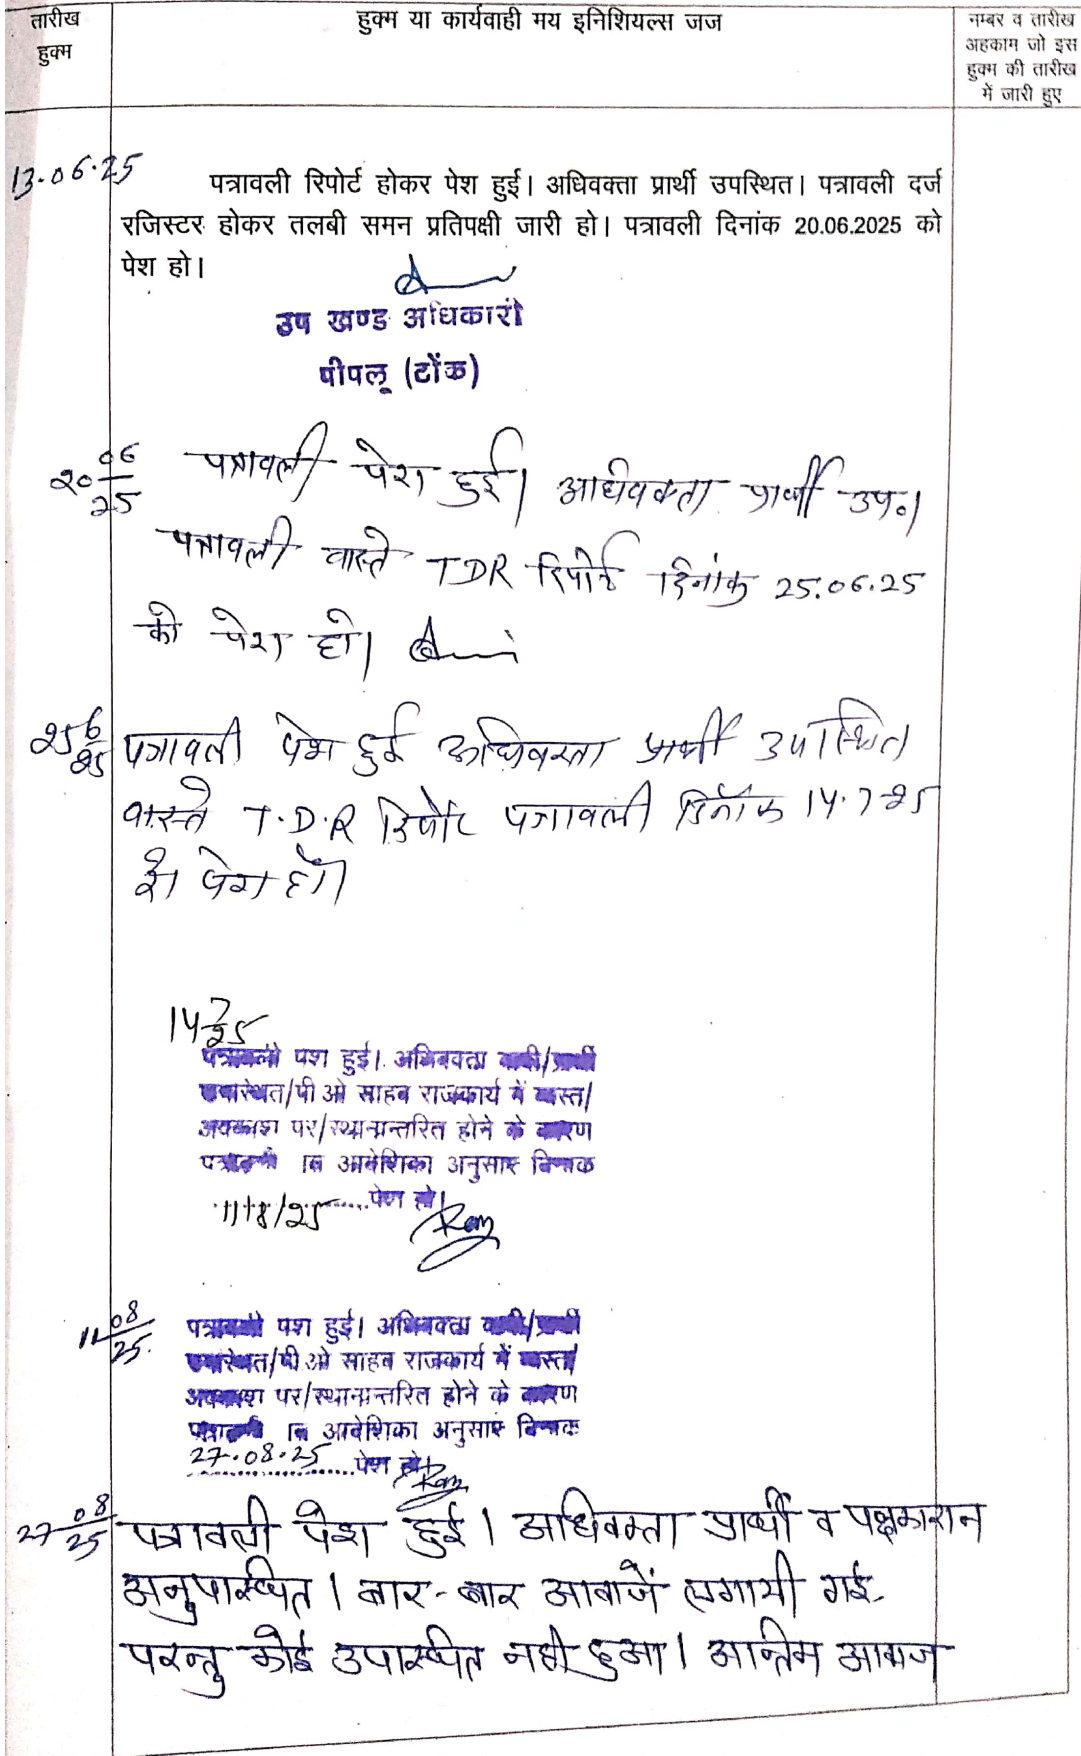 तारीख
हुक्म
हुक्म या कार्यवाही मय इनिशियल्स जज
नम्बर व तारीख
अहकाम जो इस
हुक्म की तारीख
में जारी हुए
13.06.25
पत्रावली रिपोर्ट होकर पेश हुई। अधिवक्ता प्रार्थी उपस्थित। पत्रावली दर्ज
रजिस्टर होकर तलबी समन प्रतिपक्षी जारी हो। पत्रावली दिनांक 20.06.2025 को
पेश हो।
उप खण्ड अधिकारी
पीपलू (टोंक)
20 06/25
पत्रावली पेश हुई। अधिवक्ता प्रार्थी उप०।
पत्रावली वास्ते TDR रिपोर्ट दिनांक 25.06.25
को पेश हो।
25 6/25
पत्रावली पेश हुई अधिवक्ता प्रार्थी उपस्थित
वास्ते T.D.R रिपोर्ट पत्रावली दिनांक 14.7.25
को पेश हो।
14 7/25
पत्रावली पेश हुई। अभिवक्ता वादी/प्रार्थी
उपस्थित/पी ओ साहब राजकार्य में व्यस्त/
अवकाश पर/स्थानान्तरित होने के कारण
पत्रावली आदेशिका अनुसार दिनांक
11/8/25 पेश हो।
Ram
11 08/25
पत्रावली पेश हुई। अभिवक्ता वादी/प्रार्थी
उपस्थित/पी ओ साहब राजकार्य में व्यस्त/
अवकाश पर/स्थानान्तरित होने के कारण
पत्रावली आदेशिका अनुसार दिनांक
27.08.25 पेश हो।
Ram
27 08/25
पत्रावली पेश हुई। अधिवक्ता प्रार्थी व पक्षकारान
अनुपस्थित। बार-बार आवाजें लगायी गई
परन्तु कोई उपस्थित नही हुआ। अन्तिम आवाज